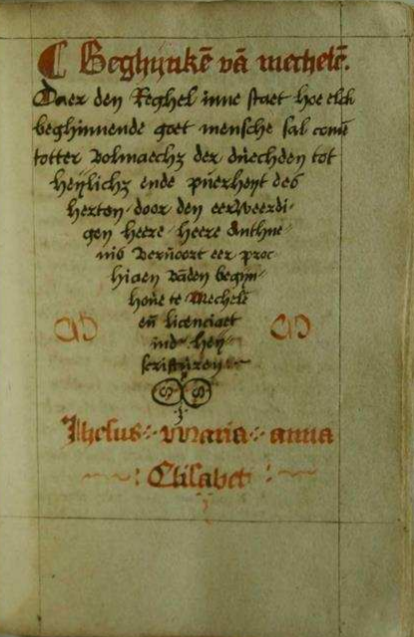 ¶ Beghijnkē vā mechelē.
Daer den Reghel inne staet hoe elck
beghinnende goet mensche sal comē
totter volmaechz der duechden tot
heylichz ende puerheyt des
herten door den eerweerdi-
gen heere heere Anthue-
nis vervoert eer proc
hiaen vāden begijn-
hove te Mechelē
eñ licenciaet
ind hey
scrifturen
Ihesus maria anna
Elisabet